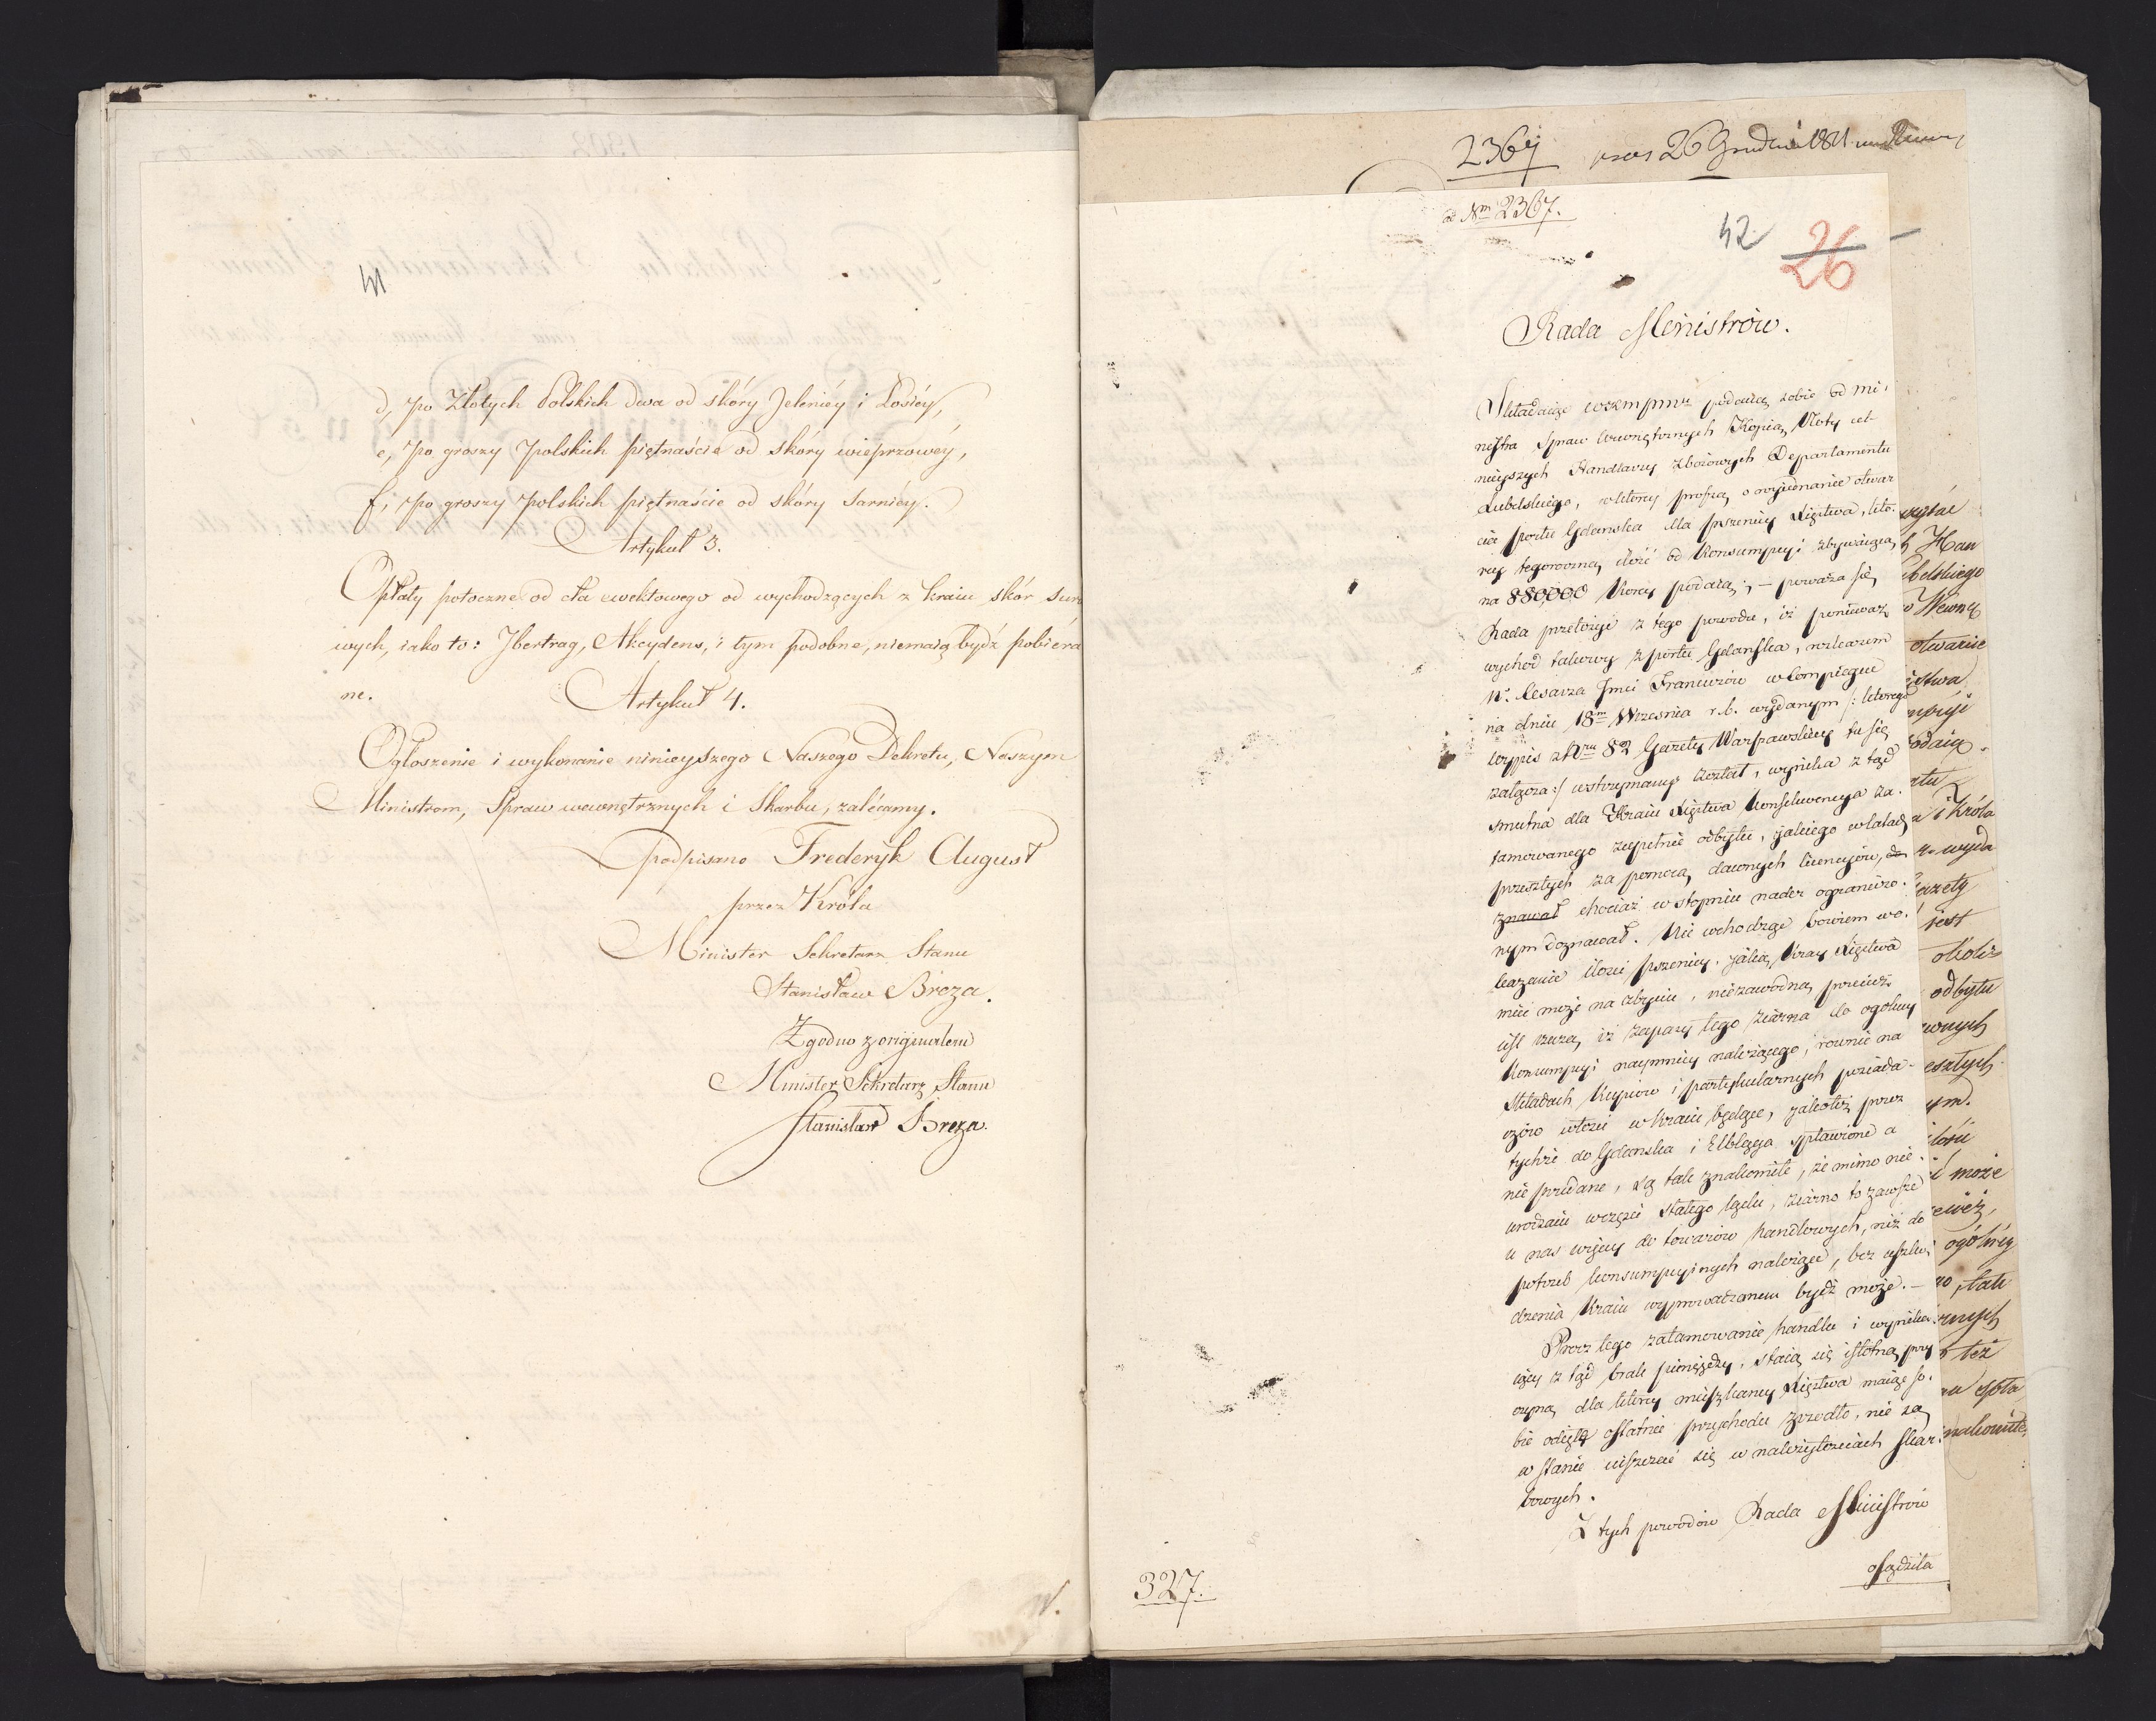 41
d, po Złotych Polskich dwa od skóry Jeleniéy i Łosiéy,
e, po groszy polskich piętnaście od skóry wieprzowéy,
f, po groszy polskich piętnaście od skóry sarniéy.
Artykuł 3.
Opłaty potoczne od cła ewektowego od wychodzących z kraiu skór suro
wych, iako to: Jbertrag, Akcydens, i tym podobne, niemaią bydź pobiéra
ne.
Artykuł 4.
Ogłoszenie i wykonanie ninieyszego Naszego Dekretu, Naszym
Ministrom, Spraw wewnętrznych i Skarbu, zalécamy.
podpisano Frederyk August
przez Króla
Minister Sekretarz Stanu
Stanisław Breza.
Zgodno z originałem
Minister Sekretarz Stanu
Stanisław Breza.
2367 26 Grudnia 1811
ad Nm 2367.
42 26
Rada Ministrów.
Składaiąc podaną sobie od Mi-
nistra Spraw Wewnętrznych Kopią Noty cel-
nieyszych Handlarzy zbożowych Departamentu
Lubelskiego, w którey proszą o wyiednanie otwar
cia portu Gdańska dla pszenicy Xięztwa, któ-
rey tegoroczną ilość od Konsumpcyi zbywaiącą
na 880,000 Korcy podaią; — poważa się
Rada przełożyć z tego powodu, iż ponieważ
wychod takowy z portu Gdańska, rozkazem
N. Cesarza Jmci Francuzów w Compiegne
na dniu 18m Września r.b. wydanym /: którego
wypis z Nru 82 Gazety Warszawskiey tu się
załącza :/ wstrzymany został, wynika z tąd
smutna dla Kraiu Xięztwa Konsekwencya za-
tamowanego zupełnie odbytu, iakiego w latach
przeszłych za pomocą dawnych licencyów, do
znawał chociaż w stopniu nader ograniczo-
nym doznawał. Nie wchodząc bowiem w o-
kazanie ilości pszenicy, iaką Kray Xięztwa
mieć może na zbyciu, niezawodną przecież
iest rzeczą, iż zapasy tego ziarna do ogólney
Konsumpcyi naymniey należącego, równie na
Składach Kupców i partykularnych posiada-
czów w Kraiu będące, iakoteż przez
tychże do Gdańska i Elbląga spławione a
nie przedane, są tak znakomite, że mimo nie-
urodzaiu w części stałego lądu, ziarno to zawsze
u nas więcey do towarów handlowych, niż do
potrzeb konsumpcyinych należące, bez uszko-
dzenia Kraiu wyprowadzonem bydź może. —
Procz tego zatamowanie handlu i wynika-
iący z tąd brak pieniędzy, staią się istotną przy
czyną dla którey mieszkancy Xięztwa maiąc so-
bie odięte ostatnie przychodu zrzodło, nie są
w stanie uiszczać się w należytościach skar-
bowych.
Z tych powodów Rada Ministrów
osądziła
327.
Han
Lubelskiego
Wewnę
otwarcie
i Króla
wyda
Gazety
iest
odbytu
może
ogólney
tak
też
znakomite,